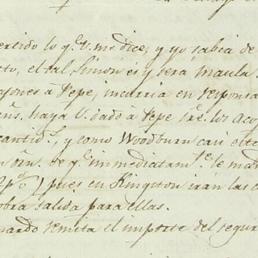 ertido lo q.e V. me dice, y yo sabia de
cto, el tal Simon es y será maula
ones a Pepe, incurria en responsa
haya V. dado á Pepe
cantid.s, y como Woodburn casi
de q.e immediatam.te le ma
pues en Kingston iran las
obra salida para ellas.
uardo remita el importe del segur